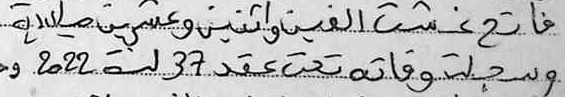 فاتح غشت الفين واثنين وعشرين ميلادية
وسجلت وفاته تحت عقد 37 لسنة 2022 و